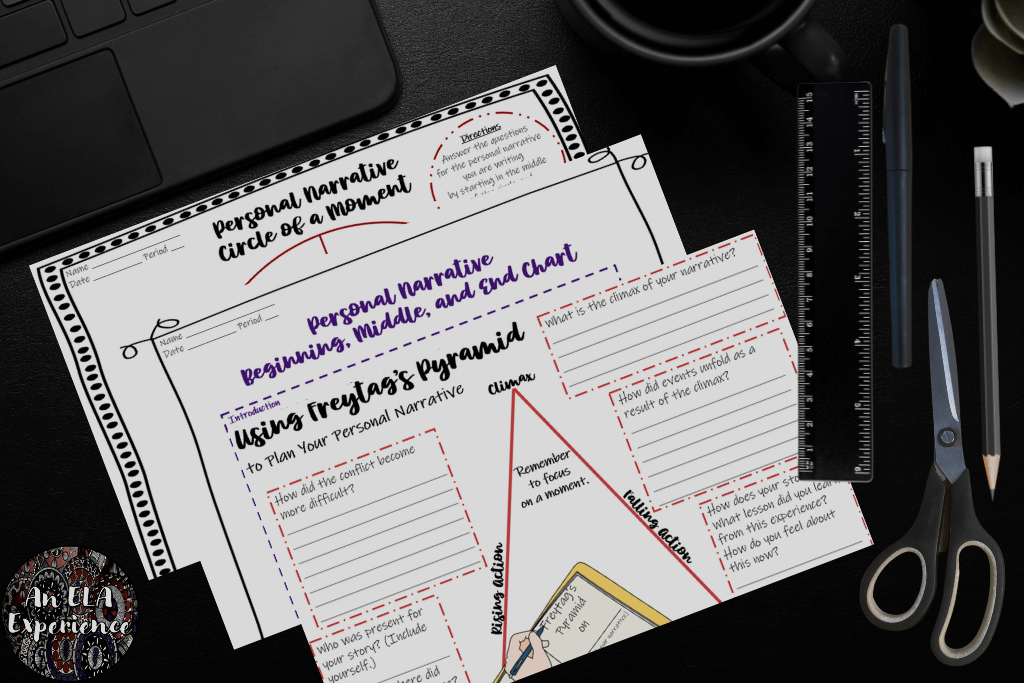 Personal Narrative
Circle of a Moment
Name
Period
Date
Directions
Answer the questions
for the personal narrative
you are writing
by starting in the middle
Personal Narrative
Beginning, Middle, and End Chart
Name
Period
Date
Introduction
Using Freytag's Pyramid
to Plan Your Personal Narrative
Climax
Remember
to focus
on a moment.
Rising action
Falling action
How did the conflict become
more difficult?
Who was present for
your story? (Include
yourself.)
What is the climax of your narrative?
How did events unfold as a
result of the climax?
How does your
what lesson did you learn
from this experience?
How do you feel about
this now?
Freytag's
Pyramid
on
An ELA
Experience